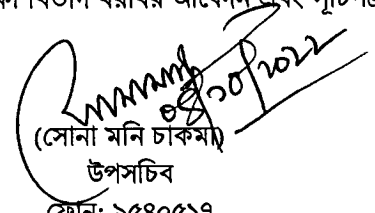 বিভাগ বরাবর আবেদন এবং
০৪/১০/২০২২
(সোনা মনি চাকমা)
উপসচিব
ফোন: ৯৫৪০৫১৭